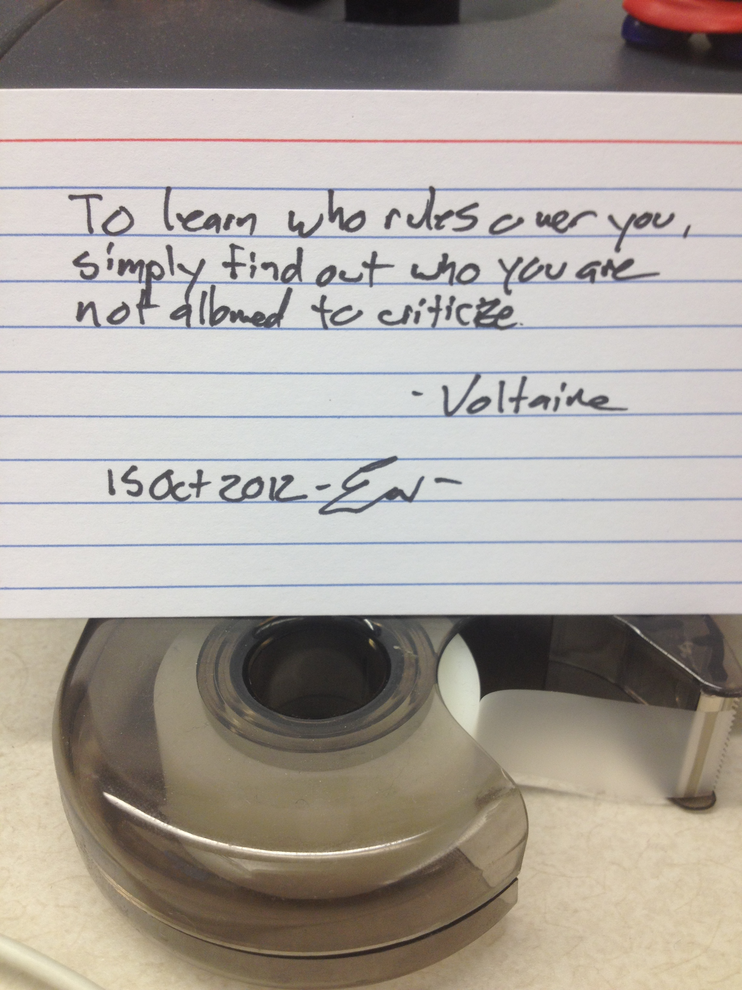 To learn who rules over you,
simply find out who you are
not allowed to criticize.
- Voltaire
15 Oct 2012 -